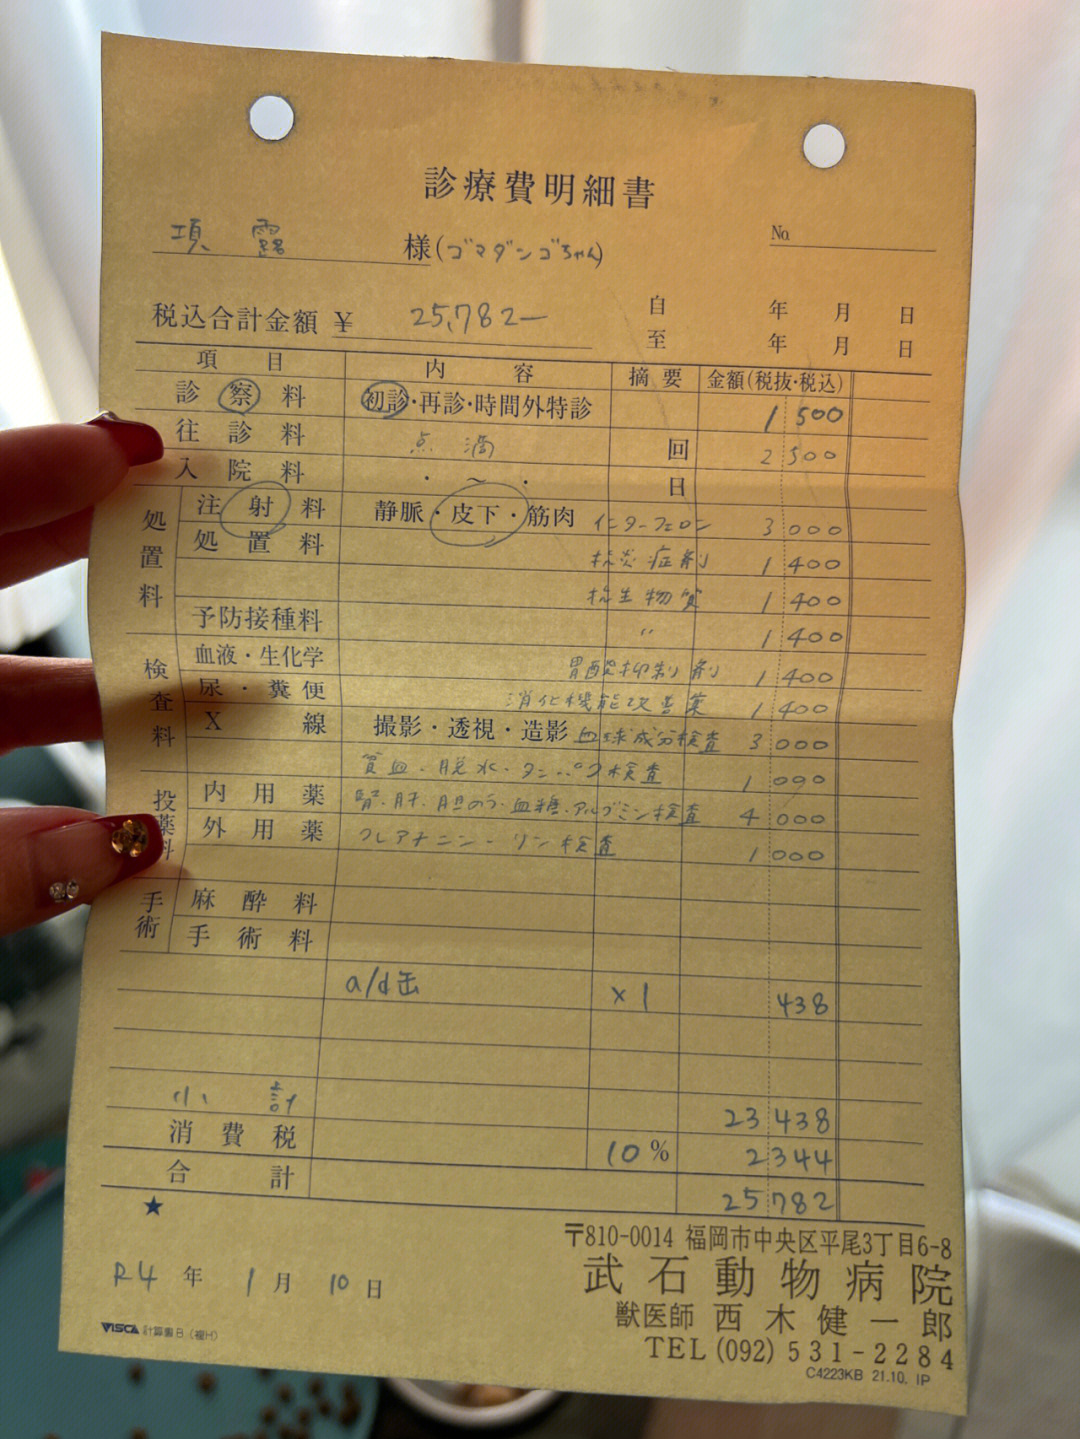 診療費明細書
項 露 様(ゴマダンゴちゃん) No.
税込合計金額 ¥ 25,782— 自 年 月 日
至 年 月 日
項 目 内 容 摘 要 金額(税抜・税込)
診 察 料 初診・再診・時間外特診 1 500
往 診 料 点 滴 回 2 500
入 院 料 ・ ~ ・ 日
処置料 注 射 料 静脈・皮下・筋肉 インターフェロン 3 000
処 置 料 抗炎症剤 1 400
抗生物質 1 400
予防接種料 〃 1 400
検査料 血液・生化学 胃酸抑制剤 1 400
尿・糞便 消化機能改善薬 1 400
X 線 撮影・透視・造影 血球成分検査 3 000
貧血・脱水・タンパク検査 1 000
投薬料 内 用 薬 腎・肝・胆のう・血糖・アルブミン検査 4 000
外 用 薬 クレアチニン・リン検査 1 000
手術 麻 酔 料
手 術 料
a/d缶 ×1 438
小 計 23 438
消 費 税 10% 2 344
合 計 25 782
★
R4 年 1 月 10 日
〒810-0014 福岡市中央区平尾3丁目6-8
武石動物病院
獣医師 西木健一郎
TEL (092) 531-2284
VISCA 計算書B(複H)
C4223KB 21.10. IP